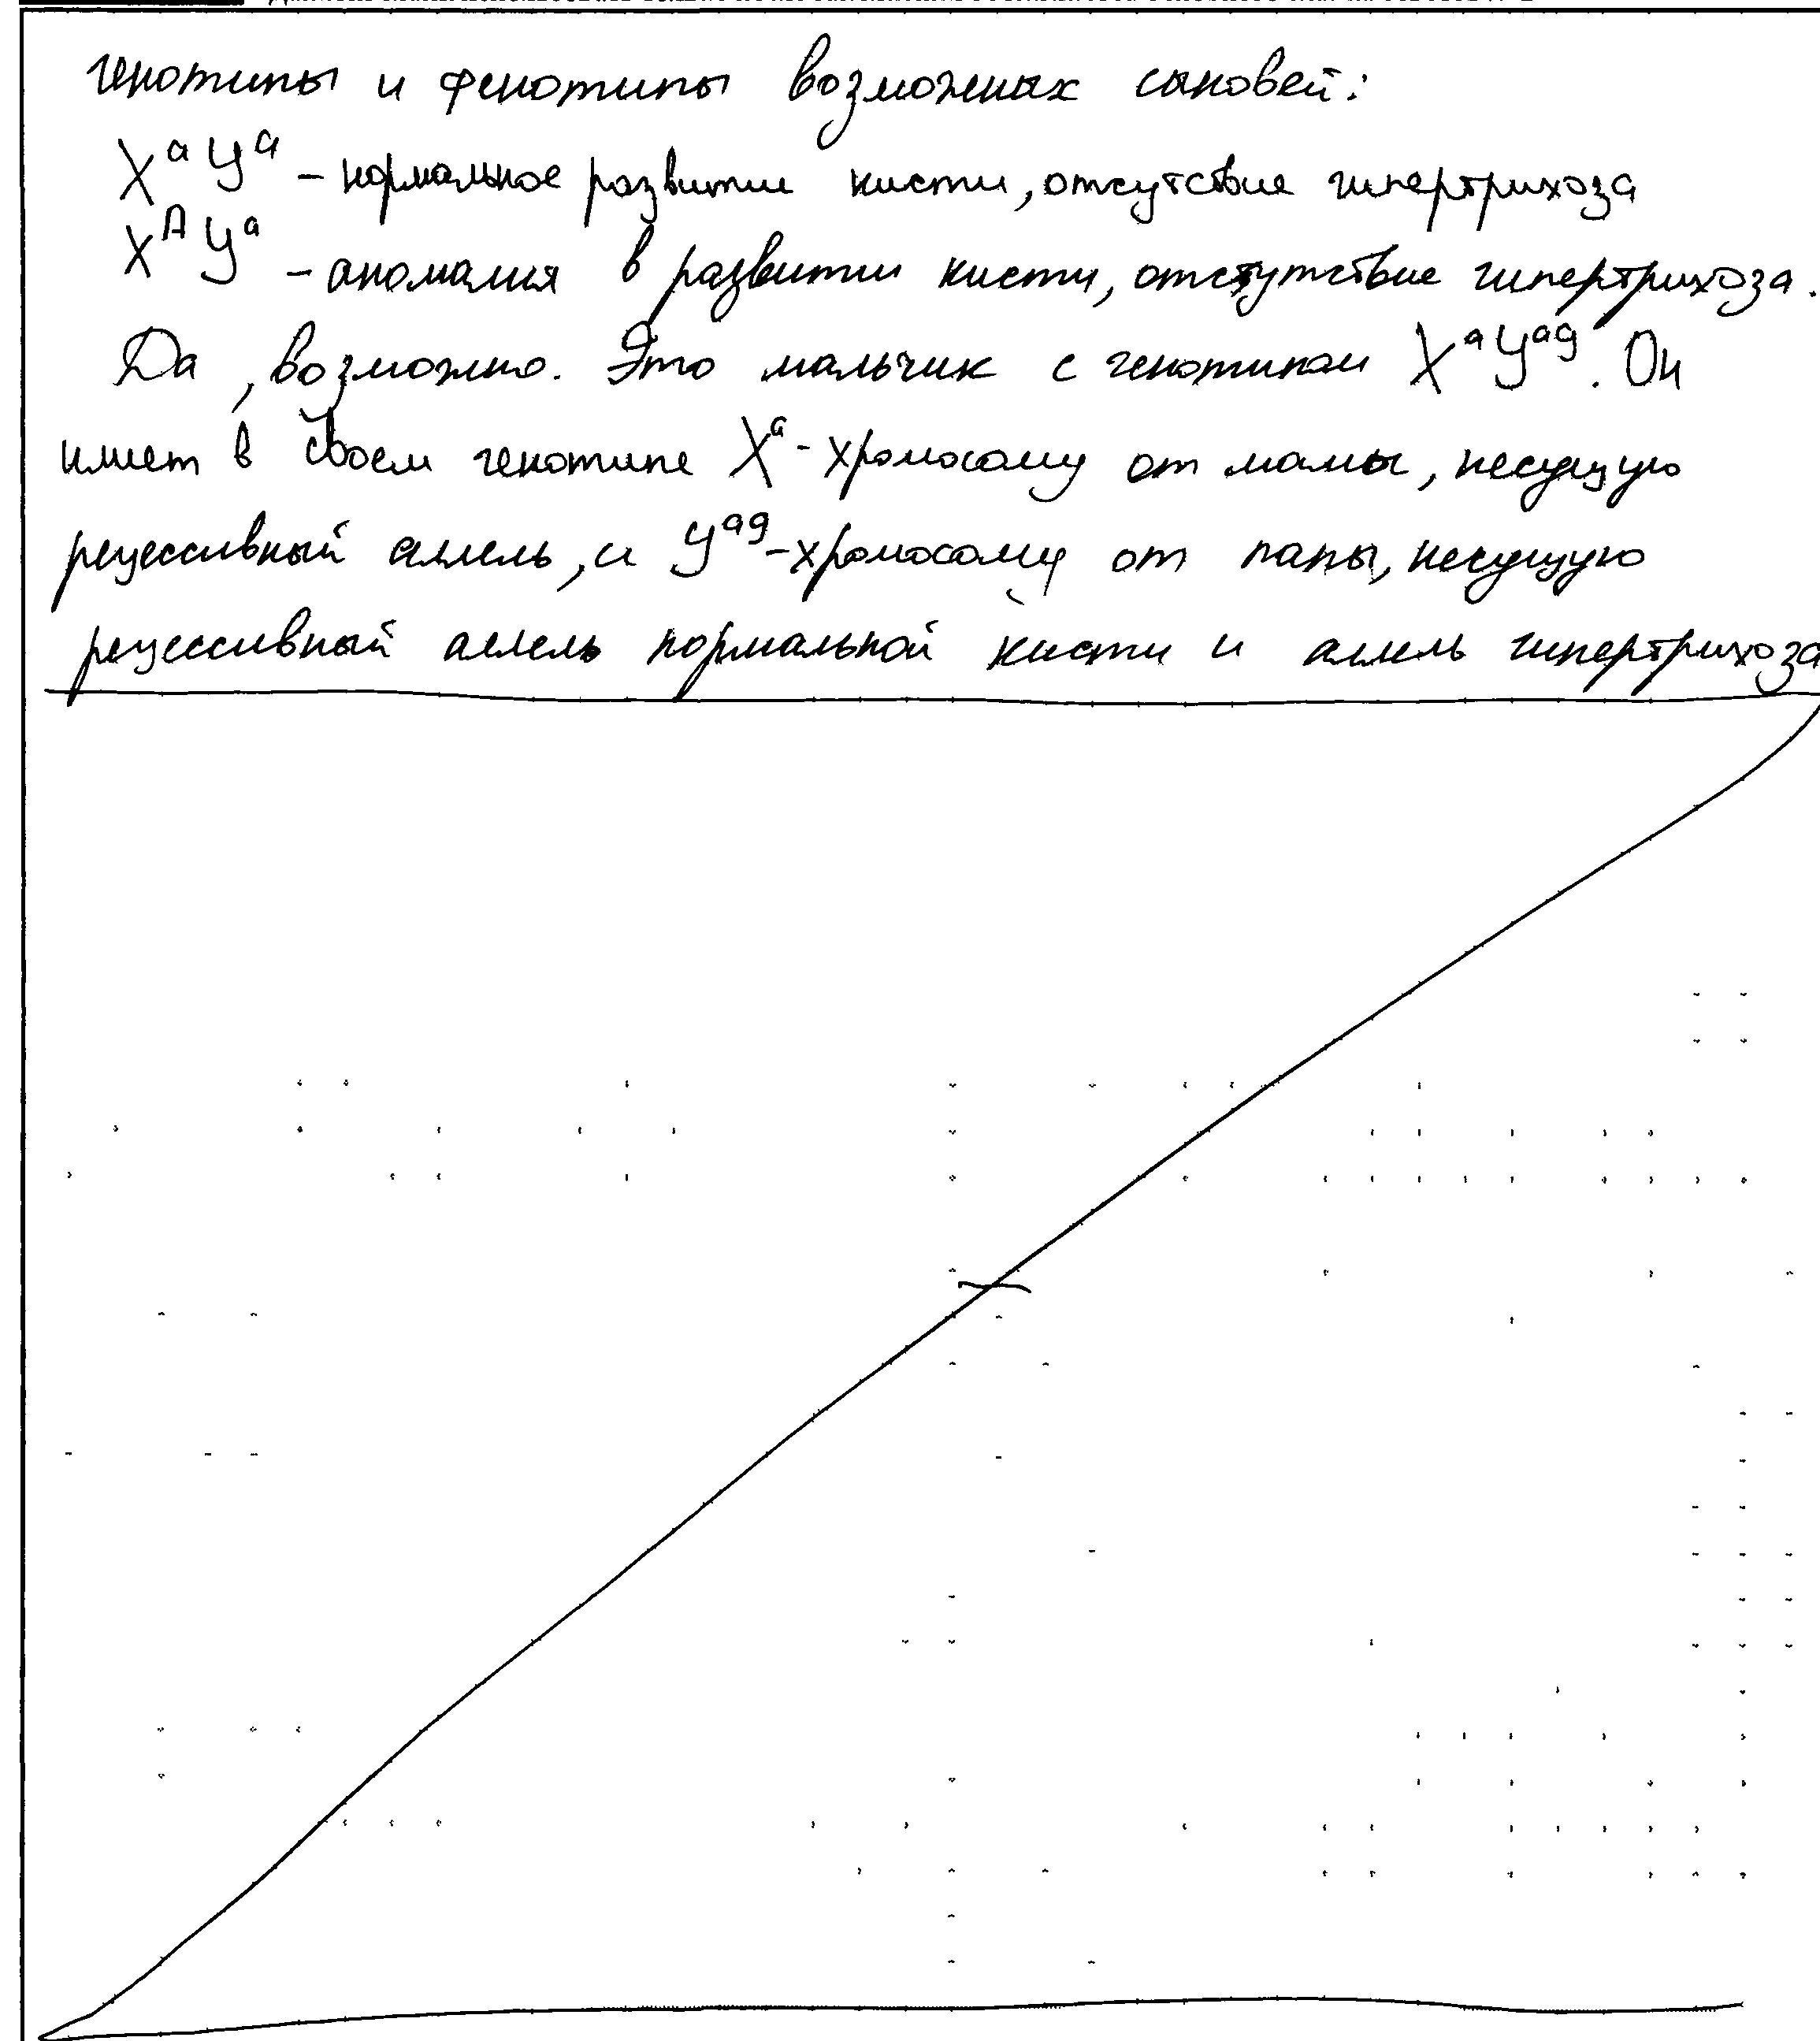 генотипы и фенотипы возможных сыновей:
XᵃYᵃ – нормальное развитие кисти, отсутствие гипертрихоза
XᴬYᵃ – аномалия в развитии кисти, отсутствие гипертрихоза.
Да, возможно. Это мальчик с генотипом XᵃYᵃᵍ. Он
имеет в своем генотипе Xᵃ-хромосому от мамы, несущую
рецессивный аллель, и Yᵃᵍ-хромосому от папы, несущую
рецессивный аллель нормальной кисти и аллель гипертрихоза